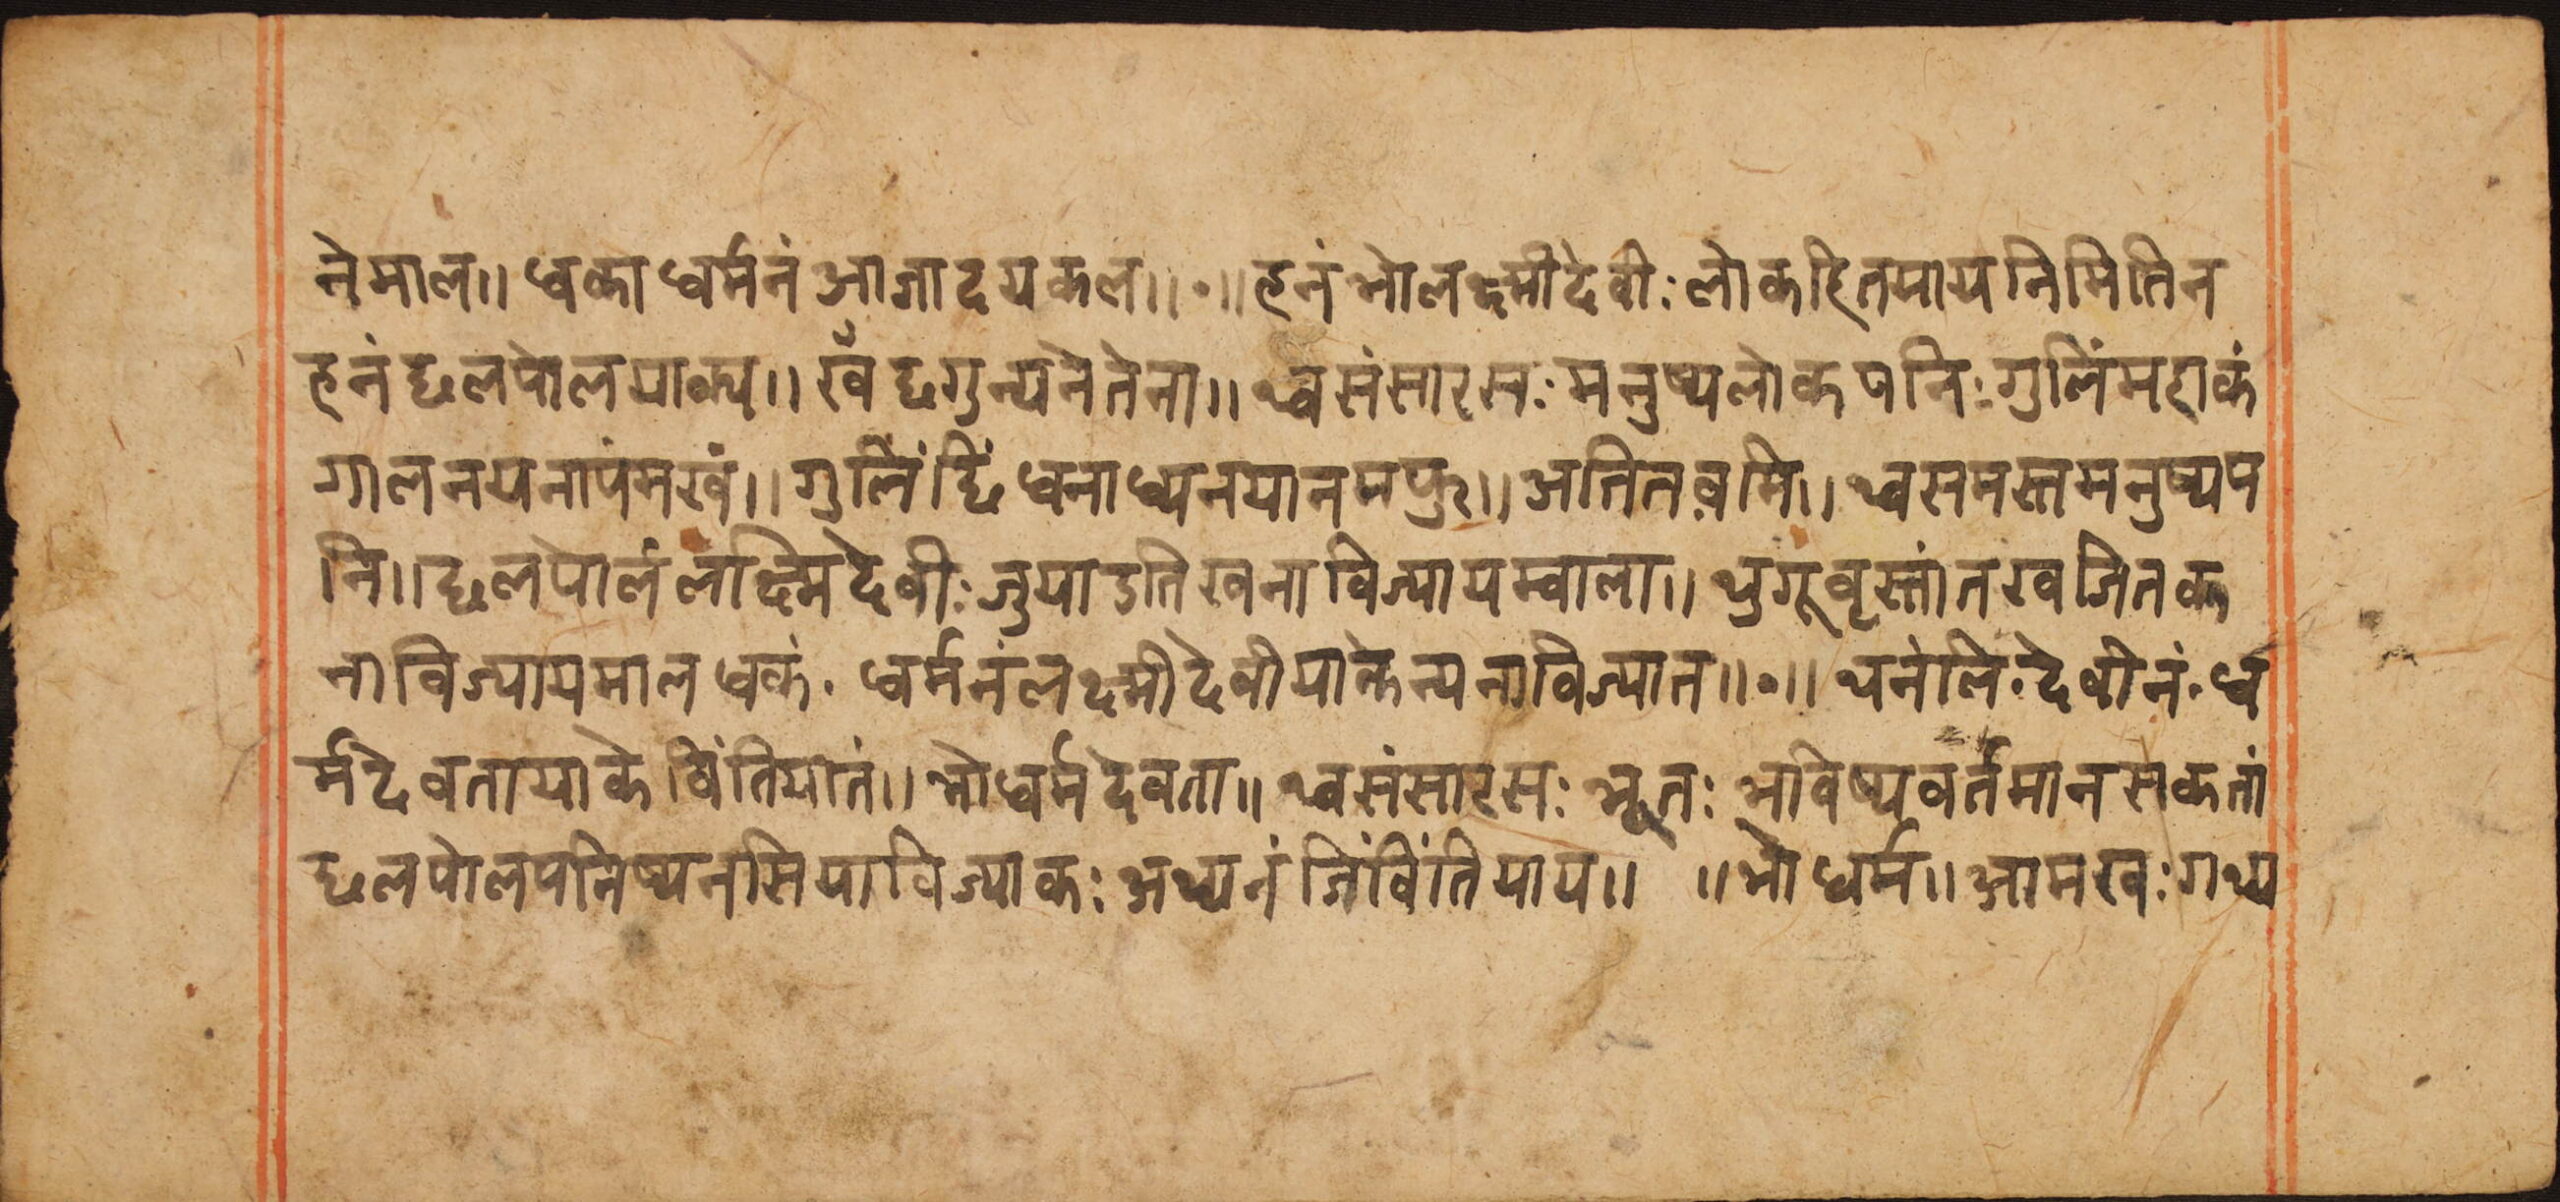 नेमाल॥ धका धर्मनं आज्ञादयकल॥ • ॥ हनं भोलक्ष्मीदेवी: लोकहितयाय निमितिन
हनं छलपोलयाक्य॥ खँ छगुन्यनेतेना॥ थ्वसंसारस: मनुष्यलोकपनि: गुलिंमहाकं
गालनयनापंमखं॥ गुलिं छिं धनाध्यनयानमफु॥ अतितवमि॥ थ्वसमस्तमनुष्यप
नि॥ छलपोलं लक्ष्मिदेवी: जुयाऽतिखनाविज्यायम्वाला॥ थुगूवृस्तांतखजितक
नाविज्यायमालधकं. धर्मनंलक्ष्मीदेवीयाकेन्यनाविज्यात॥ • ॥ थनंलि. देवीनं. ध
र्मदेवतायाके विंतियातं॥ भोधर्मदेवता॥ थ्वसंसारस: भूत: भविष्यवर्तमानसकतां
छलपोलपनिष्यनसियाविज्याक: अथ्यनं जिंविंतियाय॥ ॥ भो धर्म॥ आमखव: गथ्य